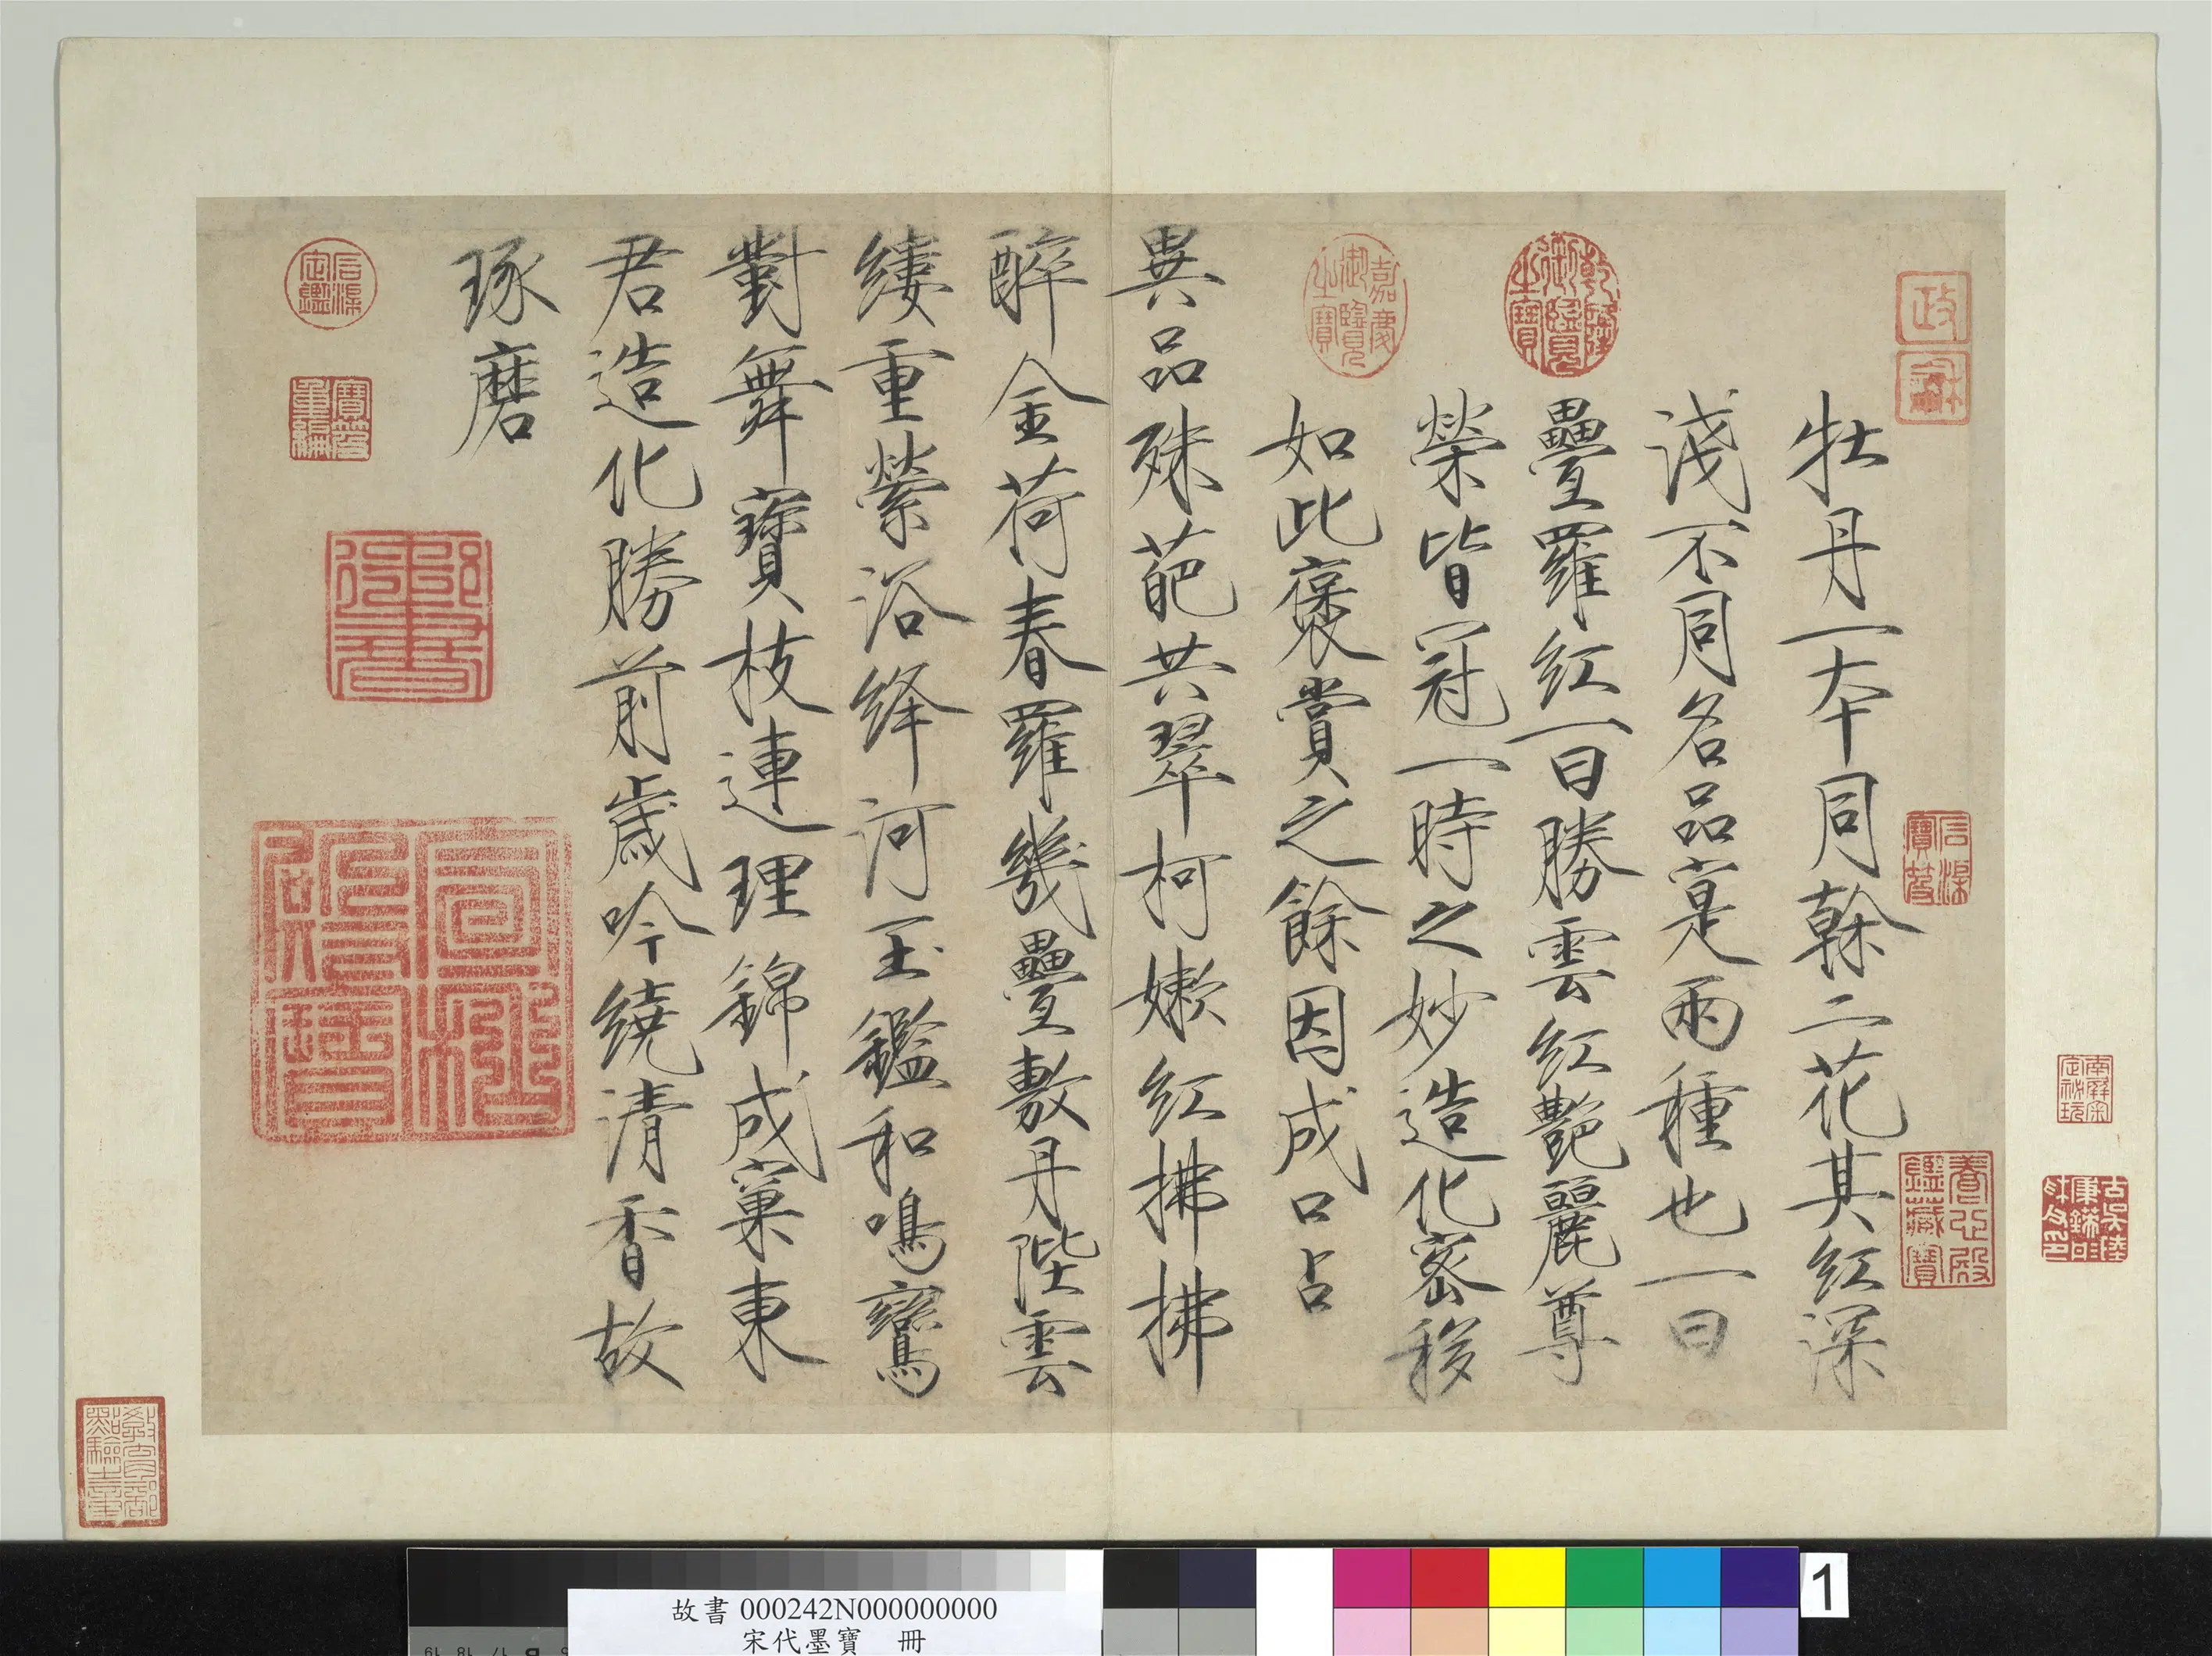 牡丹一本同榦二花其紅深
淺不同名品寔兩種也一曰
疊羅紅一曰勝雲紅艶麗尊
榮皆冠一時之妙造化密移
如此褒賞之餘因成口占
異品殊葩共翠柯嫩紅拂拂
醉金荷春羅幾疊敷丹陛雲
縷重縈浴絳河玉鑑和鳴鸞
對舞寶枝連理錦成窠東
君造化勝前歲吟繞清香故
琢磨
政
龢
乾隆御覽之寶
嘉慶御覽之寶
石渠寶笈
養心殿鑑藏寶
石渠定鑑
寶笈重編
御書
教育部點驗之章
故書 000242N000000000
宋代墨寶 冊
1
B 17 18 19